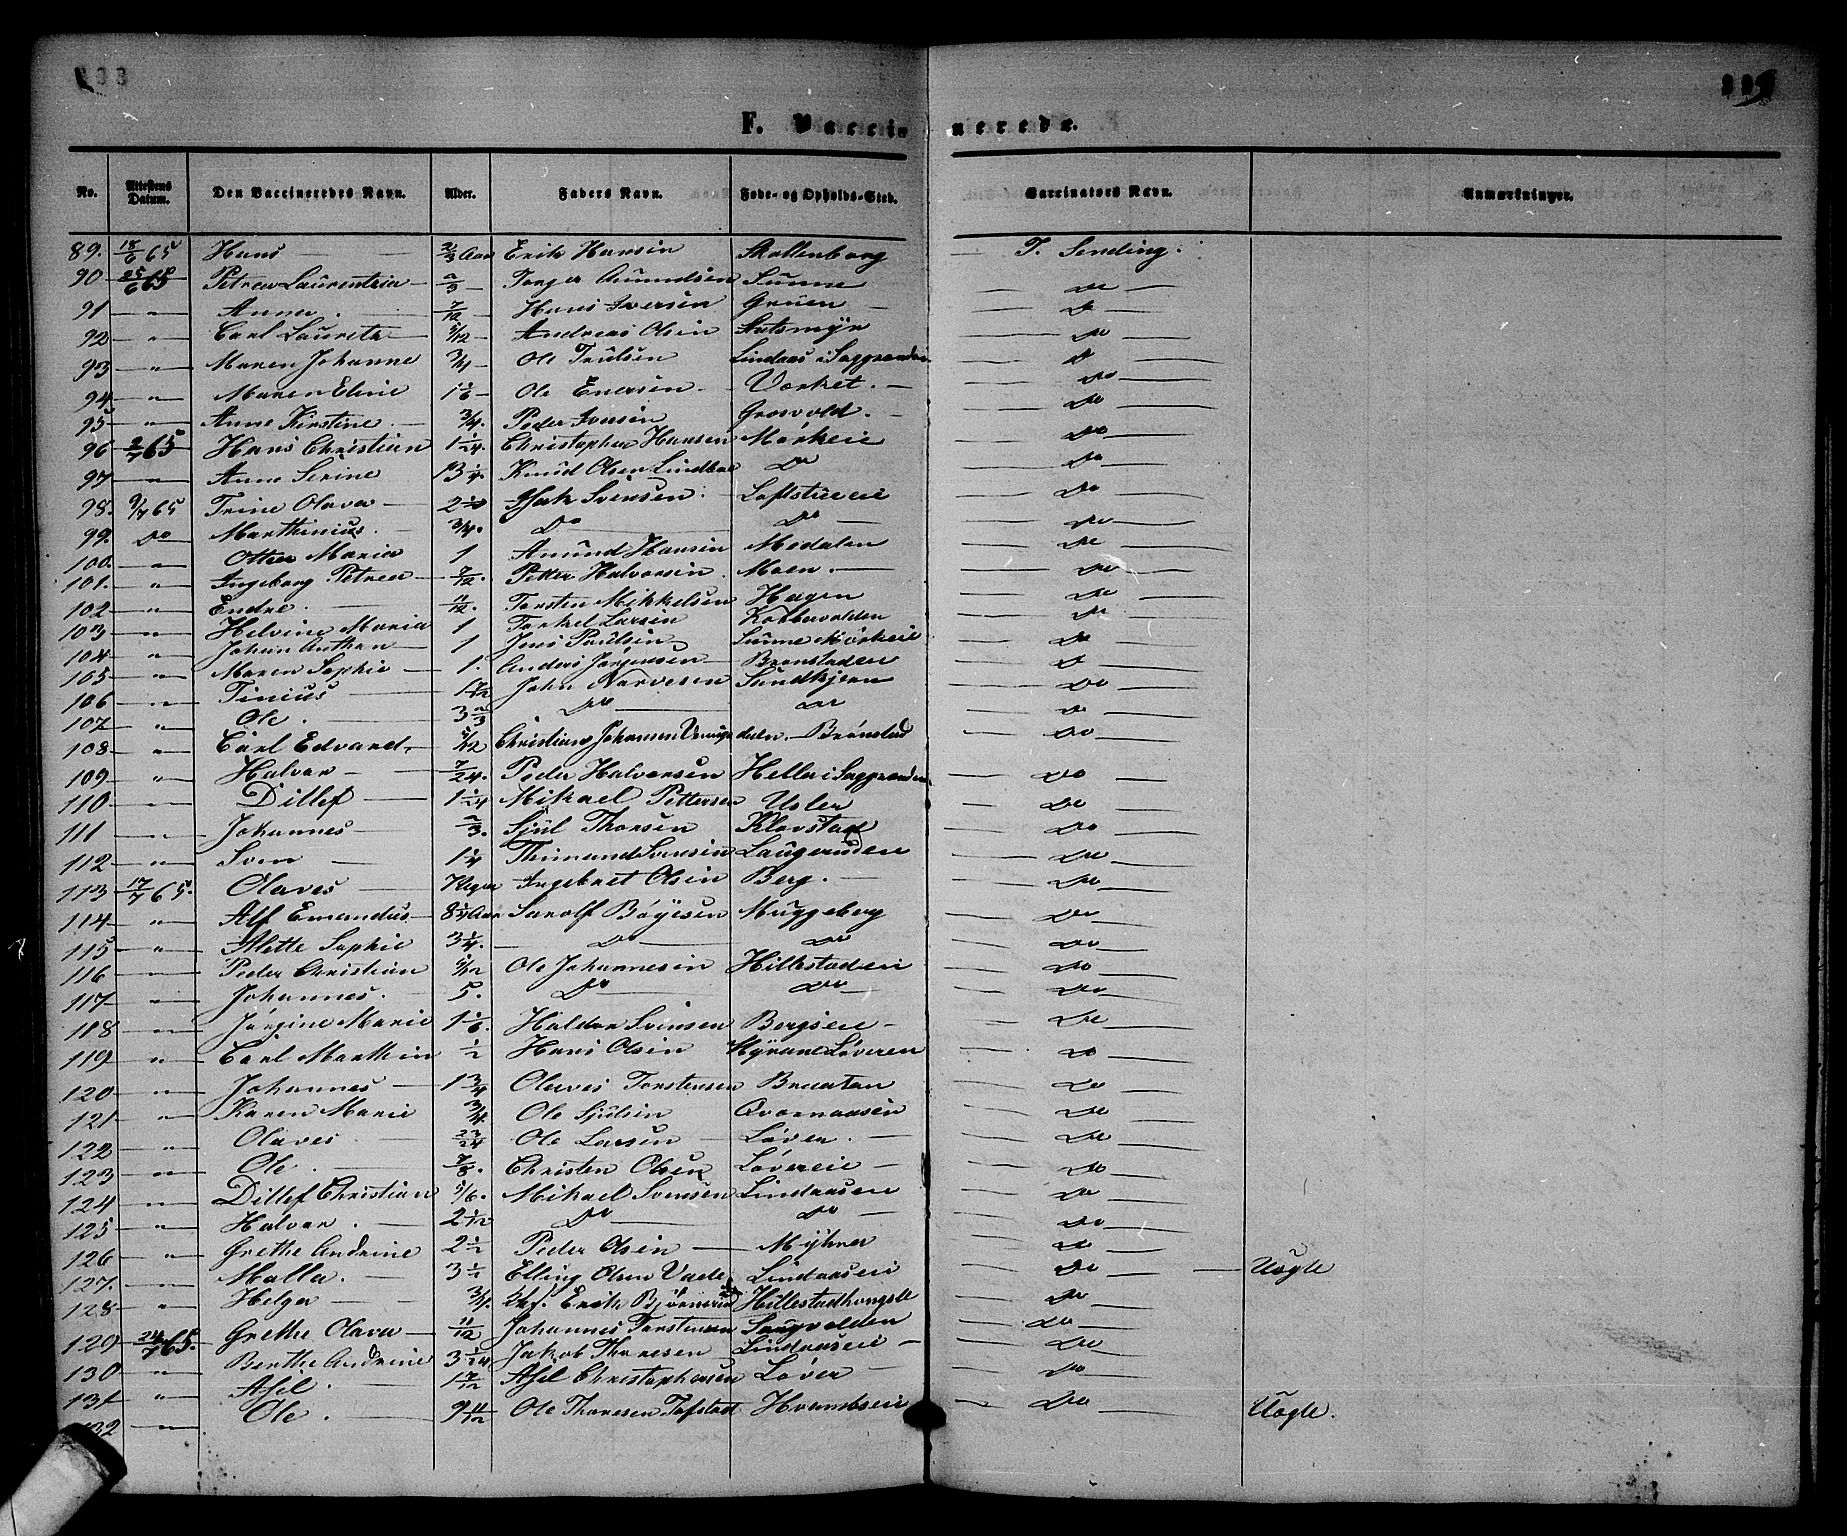 F. Vaccinerede.
No. Attestens Datum. Den Vaccineredes Navn. Alder. Faders Navn. Føde- og Opholds-Sted. Vaccinators Navn. Anmærkninger.
89. 18/6 65 Hans — 2/3 Aar Erik Hansen Skollenborg — T. Sending.
90 25/6 65 Petrea Laurentzia — 2/3 — Torger Amundsen Sunne — Do —
91 — " — Anna. — 7/12 — Hans Iversen Gruen — — Do —
92 — " — Carl Lauritz — 5/12 — Andreas Olsen — Do —
93 — " — Maren Johanne 3/4 — Ole Trulsen Lindaas i Saggrenden — Do —
94 — " — Maren Eline 1 1/6 — Ole Enersen — Værket. — — Do —
95 — " — Anne Kirstine. — 3/4. Peder Ivensen Grosvold. — — Do —
96 2/7 65 Hans Christian 1 1/24. Christopher Hansen Mørkeie — Do —
97 — " — Anne Serine 13 1/4 Knud Olsen Lindbae Do — Do —
98. 9/7 65 Trine Olava — Isak Svensen. — Loftstueeie — Do —
99. Do Marthinius. — 3/4. Do — Do — — Do —
100. — " — Maria 1 Amund Hansen Medalen — Do —
101. — " — Ingeborg Petrea — 7/12. Petter Halvorsen. Moen. — — Do —
102 — " — Endre. — 11/12. Torsten Mikkelsen Hagen — Do —
103 — " — Helvine Maria 1 Torkel Larsen Kobbervolden — Do —
104 — " — Johan Anthon — 1 Jens Paulsen — Sunne Mørkeie — Do —
105 — " — Maren Sophie — 1. Anders Jørgensen — Bronstadeie — Do —
106 — " — Tinius — 1 7/12 John Narvesen Sundkjern — Do —
107 — " — Ole. — 3 2/3 Do — Do — Do —
108 — " — Carl Edvard, — 5/12 Christians Johansen Brønstad — Do —
109 — " — Halvor — 7/24. Peder Halvorsen Hella i Saggrenden — Do —
110 — " — Ditlef — 1 1/24 Mikael Pettersen Usler — Do —
111 — " — Johannes — 2/3. Sjul Thorsen Klovstad — Do —
112 — " — Sven — 1 1/4 Thimand Svensen Laugeruden — Do —
113 17/7 65. Olaves — 7 Uger Ingebret Olsen Berg. — — Do —
114 — " — Alf Emandus — 8 1/4 Aar Sarolf Bøyesen Muggeberg — Do —
115 — " — Alette Sophie 3 1/4. — Do — Do — Do —
116 — " — Peder Christian 5/12 Ole Johannesen Hillestadeie — Do —
117 — " — Johannes. — 5. Do — Do — — Do —
118 — " — Jørgine Marie 1 1/6. Haldor Svensen Bergseie — — Do —
119 — " — Carl Marthin 1/2 Hans Olsen Myrane Løveren — Do —
120 — " — Johannes — 1 3/4 Olaves Torstensen Braatan — Do —
121 — " — Karen Marie 3/4. Ole Sjulsen Qvornaasen — Do —
122 — " — Olaves. — 23/24. Ole Larsen — Løver. — — Do —
123 — " — Ole. — 7/8. Christen Olsen Løvereie — — Do —
124 — " — Ditlef Christian 5/6. Mikael Svensen Lindaasen — Do —
125 — " — Halvor. — 2 1/12 Do — Do — — Do —
126 — " — Grethe Andrine 2 1/2 Peder Olsen — Myhrer — Do —
127. — " — Malla. — 3 1/2 Elling Olsen Lindaaseie — Do — Uægte
128 — " — Helga — 3/4. Erik Hillestad — Do —
129 24/7 65. Grethe Olava — 11/12 Johannes Torstensen Saugvolden — Do —
130 — " — Berthe Andrine 3 1/24 Jakob Thoresen Lindaaseie — — Do —
131 — " — Asel. — 1 7/12 Asel Christophersen Løver — Do —
132 — " — Ole. — 9 11/12 Ole Thoresen Tofstad Hvamseie — Do — Uægte.